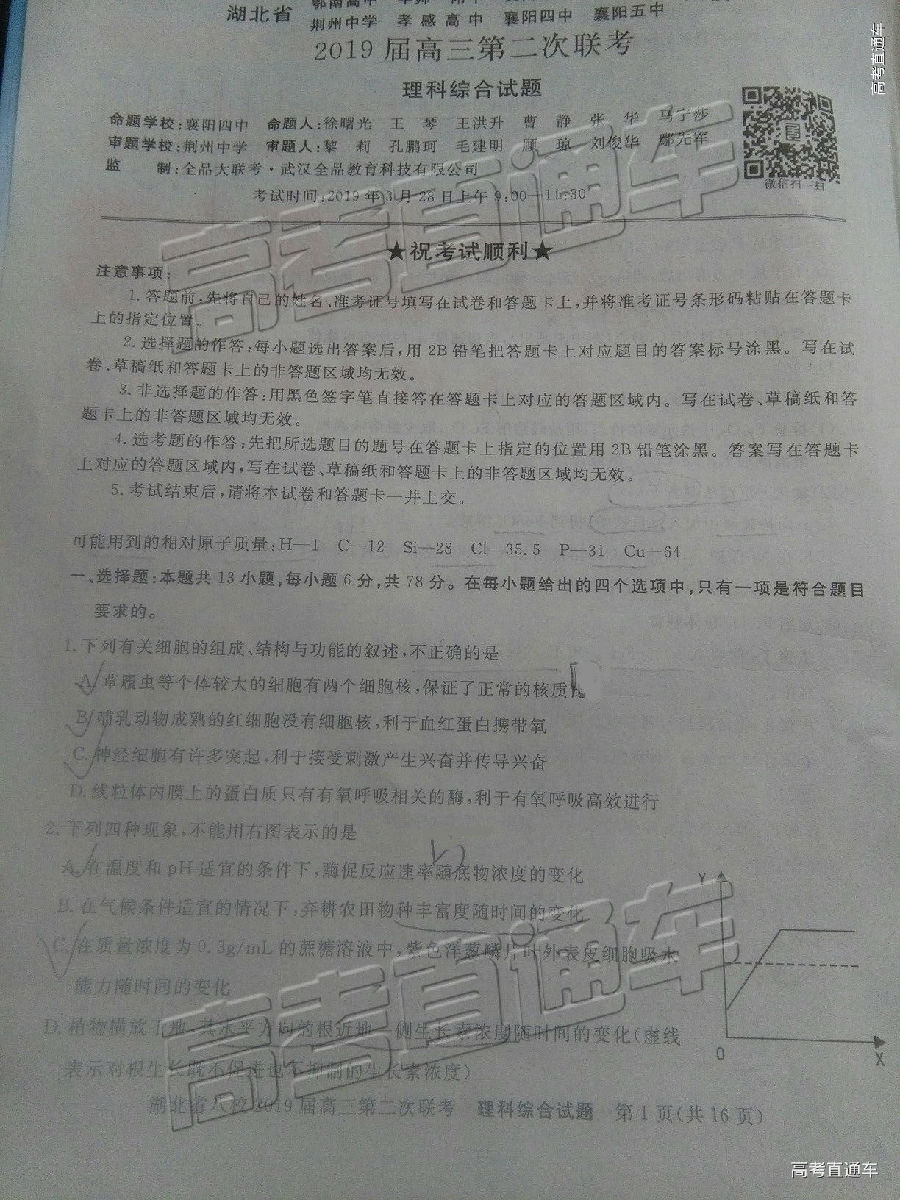 高考直通车
湖北省
荆州中学 孝感高中 襄阳四中 襄阳五中
2019届高三第二次联考
理科综合试题
命题学校:襄阳四中 命题人:徐曙光 王 琴 王洪升 曹 静 张 华 马宁莎
审题学校:荆州中学 审题人:黎 莉 孔鹏珂 毛建明 顾 琼 刘俊华 鄢先祥
监 制:全品大联考·武汉全品教育科技有限公司
考试时间:2019年3月28日上午9:00—11:30
微信扫一扫
★祝考试顺利★
注意事项:
1.答题前,先将自己的姓名、准考证号填写在试卷和答题卡上,并将准考证号条形码粘贴在答题卡
上的指定位置。
2.选择题的作答:每小题选出答案后,用2B铅笔把答题卡上对应题目的答案标号涂黑。写在试
卷、草稿纸和答题卡上的非答题区域均无效。
3.非选择题的作答:用黑色签字笔直接答在答题卡上对应的答题区域内。写在试卷、草稿纸和答
题卡上的非答题区域均无效。
4.选考题的作答:先把所选题目的题号在答题卡上指定的位置用2B铅笔涂黑。答案写在答题卡
上对应的答题区域内,写在试卷、草稿纸和答题卡上的非答题区域均无效。
5.考试结束后,请将本试卷和答题卡一并上交。
可能用到的相对原子质量:H—1 C—12 Si—28 Cl—35.5 P—31 Cu—64
一、选择题:本题共13小题,每小题6分,共78分。在每小题给出的四个选项中,只有一项是符合题目
要求的。
1.下列有关细胞的组成、结构与功能的叙述,不正确的是
A.草履虫等个体较大的细胞有两个细胞核,保证了正常的核质
B.哺乳动物成熟的红细胞没有细胞核,利于血红蛋白携带氧
C.神经细胞有许多突起,利于接受刺激产生兴奋并传导兴奋
D.线粒体内膜上的蛋白质只有有氧呼吸相关的酶,利于有氧呼吸高效进行
2.下列四种现象,不能用右图表示的是
A.在温度和pH适宜的条件下,酶促反应速率随底物浓度的变化
B.在气候条件适宜的情况下,弃耕农田物种丰富度随时间的变化
C.在质量浓度为0.3g/mL的蔗糖溶液中,紫色洋葱鳞片叶外表皮细胞吸水
能力随时间的变化
D.植物横放于地,其水平方向的根近地一侧生长素浓度随时间的变化(虚线
表示对根生长既不促进也不抑制的生长素浓度)
Y
0
X
湖北省八校2019届高三第二次联考 理科综合试题 第1页(共16页)
高考直通车
高考直通车
高考直通车